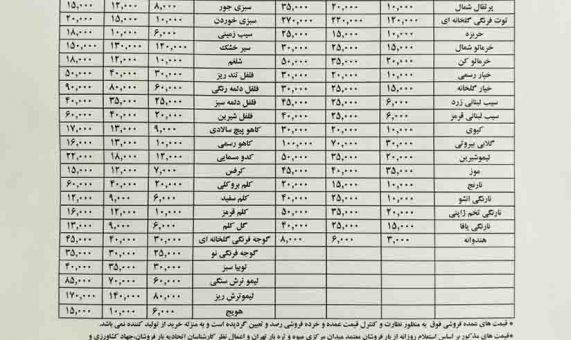 پرتقال شمال ۱۰,۰۰۰ ۲۰,۰۰۰ ۳۵,۰۰۰ سبزی جور ۸,۰۰۰ ۱۲,۰۰۰ ۱۵,۰۰۰
توت فرنگی گلخانه ای ۱۲۰,۰۰۰ ۲۲۰,۰۰۰ ۲۷۰,۰۰۰ سبزی خوردن ۱۰,۰۰۰ ۱۵,۰۰۰ ۲۰,۰۰۰
خربزه ۱۰,۰۰۰ ۱۵,۰۰۰ ۲۵,۰۰۰ سیب زمینی ۶,۰۰۰ ۱۰,۰۰۰ ۱۸,۰۰۰
خرمالو شمال ۱۵,۰۰۰ ۲۵,۰۰۰ ۳۰,۰۰۰ سیر خشک ۱۲۰,۰۰۰ ۱۳۰,۰۰۰ ۱۵۰,۰۰۰
خرمالو کن ۲۰,۰۰۰ ۳۵,۰۰۰ ۵۰,۰۰۰ شلغم ۱۰,۰۰۰ ۱۲,۰۰۰ ۱۸,۰۰۰
خیار رسمی ۱۰,۰۰۰ ۲۰,۰۰۰ ۳۰,۰۰۰ فلفل تند ریز ۳۰,۰۰۰ ۴۰,۰۰۰ ۵۰,۰۰۰
خیار گلخانه ۱۵,۰۰۰ ۲۵,۰۰۰ ۳۰,۰۰۰ فلفل دلمه رنگی ۶۰,۰۰۰ ۸۰,۰۰۰ ۹۰,۰۰۰
سیب لبنانی زرد ۶,۰۰۰ ۲۵,۰۰۰ ۴۵,۰۰۰ فلفل دلمه سبز ۲۵,۰۰۰ ۳۵,۰۰۰ ۴۰,۰۰۰
سیب لبنانی قرمز ۶,۰۰۰ ۲۵,۰۰۰ ۴۰,۰۰۰ فلفل شیرین ۲۰,۰۰۰ ۴۰,۰۰۰ ۶۰,۰۰۰
کیوی ۱۰,۰۰۰ ۲۰,۰۰۰ ۳۰,۰۰۰ کاهو پیچ سالادی ۹,۰۰۰ ۱۳,۰۰۰ ۱۷,۰۰۰
گلابی بیروتی ۳۰,۰۰۰ ۷۰,۰۰۰ ۱۰۰,۰۰۰ کاهو رسمی ۱۰,۰۰۰ ۱۳,۰۰۰ ۱۶,۰۰۰
لیموشیرین ۲۰,۰۰۰ ۳۵,۰۰۰ ۵۰,۰۰۰ کدو مسمایی ۱۲,۰۰۰ ۱۸,۰۰۰ ۲۲,۰۰۰
موز ۳۵,۰۰۰ ۴۰,۰۰۰ ۴۵,۰۰۰ کرفس ۷,۰۰۰ ۱۲,۰۰۰ ۱۵,۰۰۰
نارنج ۱۰,۰۰۰ ۱۵,۰۰۰ ۲۰,۰۰۰ کلم بروکلی ۲۰,۰۰۰ ۴۰,۰۰۰ ۶۰,۰۰۰
نارنگی انشو ۱۰,۰۰۰ ۲۵,۰۰۰ ۴۰,۰۰۰ کلم سفید ۶,۰۰۰ ۹,۰۰۰ ۱۲,۰۰۰
نارنگی تخم ژاپنی ۲۰,۰۰۰ ۳۵,۰۰۰ ۵۰,۰۰۰ کلم قرمز ۱۰,۰۰۰ ۱۲,۰۰۰ ۱۶,۰۰۰
نارنگی یافا ۱۵,۰۰۰ ۲۵,۰۰۰ ۴۰,۰۰۰ گل کلم ۶,۰۰۰ ۹,۰۰۰ ۱۳,۰۰۰
هندوانه ۳,۰۰۰ ۶,۰۰۰ ۸,۰۰۰ گوجه فرنگی گلخانه ای ۳۰,۰۰۰ ۴۰,۰۰۰ ۴۵,۰۰۰
گوجه فرنگی نو ۲۵,۰۰۰ ۳۰,۰۰۰ ۳۵,۰۰۰
لوبیا سبز ۳۰,۰۰۰ ۳۵,۰۰۰ ۴۰,۰۰۰
لیمو ترش سنگی ۶۰,۰۰۰ ۷۰,۰۰۰ ۸۵,۰۰۰
لیموترش ریز ۸۰,۰۰۰ ۱۴۰,۰۰۰ ۱۷۰,۰۰۰
هویج ۱۰,۰۰۰ ۱۰,۰۰۰ ۱۵,۰۰۰
* قیمت های عمده فروشی فوق به منظور نظارت و کنترل قیمت عمده و خرده فروشی رصد و تعیین گردیده است و به منزله خرید از تولید کننده نمی باشد.
*قیمت های مذکور بر اساس استعلام روزانه از بار فروشان معتمد میدان مرکزی میوه و تره بار تهران و اعمال نظر کارشناسان اتحادیه بار فروشان،جهاد کشاورزی و